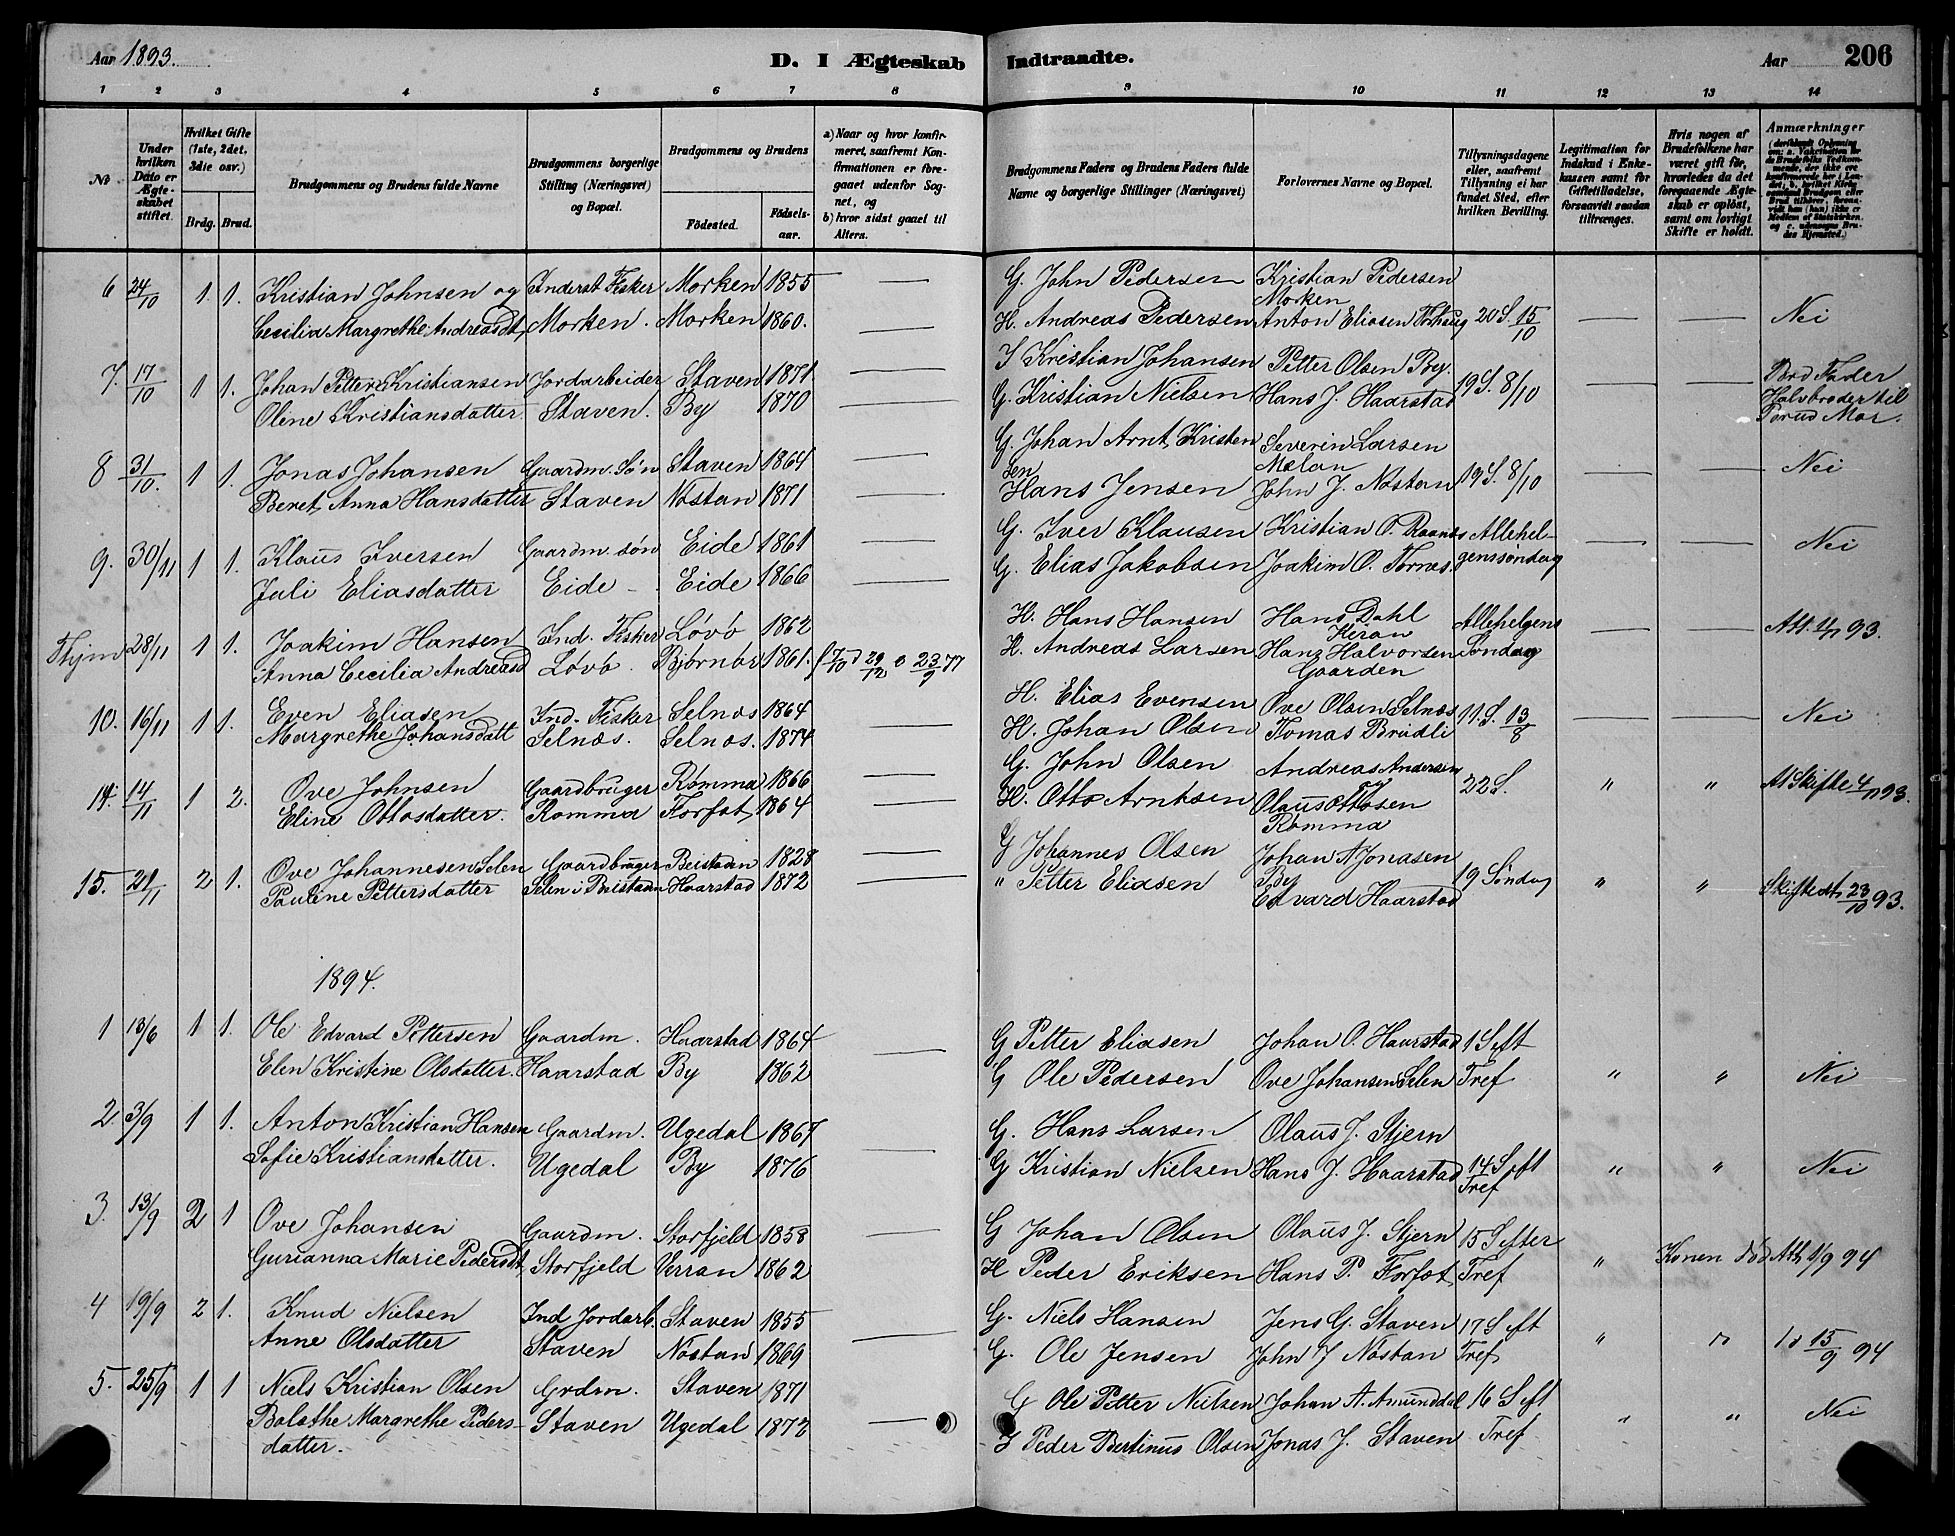 Aar 1893.
D. I Ægteskab Indtraadte.
Aar 206
1 2 3 4 5 6 7 8 9 10 11 12 13 14
No
Under hvilken Dato er Ægteskabet stiftet.
Hvilket Gifte (1ste, 2det, 3die osv.)
Brdg. Brud.
Brudgommens og Brudens fulde Navne
Brudgommens borgerlige Stilling (Næringsvei) og Bopæl.
Brudgommens og Brudens
Fødested. Fødsels-aar.
a) Naar og hvor konfirmeret, saafremt Konfirmationen er foregaaet udenfor Sognet, og
b) hvor sidst gaaet til Alters.
Brudgommens Faders og Brudens Faders fulde Navne og borgerlige Stillinger (Næringsvei)
Forlovernes Navne og Bopæl.
Tillysningsdagene eller, saafremt Tillysning ei har fundet Sted, efter hvilken Bevilling.
Legitimation for Indskud i Enkekassen samt for Giftetilladelse, forsaavidt saadan tiltrænges.
Hvis nogen af Brudefolkene har været gift før, hvorledes da det foregaaende Ægteskab er opløst, samt om lovligt Skifte er holdt.
Anmærkninger
6 24/10 1. 1. Kristian Johnsen og Inderst Fisker Morken 1855 — G. John Pedersen Kristian Pedersen Morken
Cecilia Margrethe Andreasdt. Morken. Morken 1860. — H. Andreas Pedersen Anton Eliasen Forhaug 20 S. 15/10 — — Nei
7. 17/10 1 1. Johan Petter Kristiansen Jordarbeider Staven 1871 — I Kristian Johansen Petter Olsen By.
Oline Kristiansdatter Staven. By 1870 — G. Kristian Nielsen Hans J. Haarstad 19 S. 8/10 — — Brd Fader Halvbroder til Brud Mor.
8 31/10. 1 1. Jonas Johansen Gaardm. Søn Staven 1864 — G. Johan Arnt Kristensen Severin Larsen Mælan
Beret Anna Hansdatter Staven Nøstan 1871 — Hans Jensen John J. Nøstan 19 S. 8/10 — — Nei
9. 30/11 1 1. Klaus Iversen Gaardm. søn Eide 1861 — G. Iver Klausen Kristian O. Raanes Allehel-
Juli Eliasdatter Eide — Eide 1866 — G. Elias Jakobsen Joakim O. Fornes. genssøndag — — Nei
28/11 1 1. Joakim Hansen Ind. Fisker Løvø 1862 H. Hans Hansen Hans Dahl Heran Allehelgens
Anna Cecilia Andreasd Løvø. Bjørnør 1861. H. Andreas Larsen Hans Halvorsen Gaarden Søndag — — Att. 93.
10. 16/11 1 1. Even Eliasen Ind. Fisker Selnæs 1864 — H. Elias Evensen Ove Olsen Selnæs
Margrethe Johansdatt Selnæs. Selnæs. 1874 H. Johan Olsen Tomas Brudli 11. S. 13/8 — — Nei
14. 14/11 1 2. Ove Johnsen Gaardbruger Rømma 1866 — G. John Olsen Andreas Andersen
Eline Ottosdatter. Romma Forfot 1864 — H. Otto Arntsen Olaus Ottosen Rømma 22 S. " " At Skifte 4/11 93.
15. 21/11 2 1. Ove Johannesen Selen Gaardbruger Beistaden 1828 — G Johannes Olsen Johan A Jonasen By
Pauline Pettersdatter Selen i Beistaden Haarstad 1872 — " Petter Eliasen Edvard Haarstad 19 Søndag " " Skiftedt. 23/10 93.
1894.
1 13/6 1 1. Ole Edvard Pettersen Gaardm. Haarstad 1864 — G Petter Eliasen Johan O. Haarstad 1 S eft
Elen Kristine Olsdatter. Haarstad By 1862 G Ole Pedersen Ove Johansen Selen Tref " " Nei
2. 3/9 1 1. Anton Kristian Hansen Gaardm. Ugedal 1867 G. Hans Larsen Olaus J. Stjern
Sofie Kristiansdatter. Ugedal By 1876 — G Kristian Nielsen Hans J. Haarstad 14 S eft Tref " " Nei
3. 13/9 2 1 Ove Johansen Gaardm. Storfjeld 1858 — G Johan Olsen Olaus J. Stjern 15 S efter
Gurianna Marie Pedersdt. Storfjeld Verran 1862 H Peder Eriksen Hans P. Forfot Tref " Konen død Att. 1/9 94
4 19/9 2 1. Knud Nielsen Ind Jordarb. Staven 1855 G. Niels Hansen Jens G. Staven 17 S eft
Anne Olsdatter Staven Nøstan 1869 — G. Ole Jensen John J Nøstan Tref " " 15/9 94
5. 25/9 1 1 Niels Kristian Olsen Grdm. Staven 1871 G Ole Petter Nilsen Johan A. Amunddal 16 S eft
Bolathe Margrethe Peders- Staven Ugedal 1872 — I Peder Bertinus Olsen Jonas J. Staven Tref " " Nei
datter.